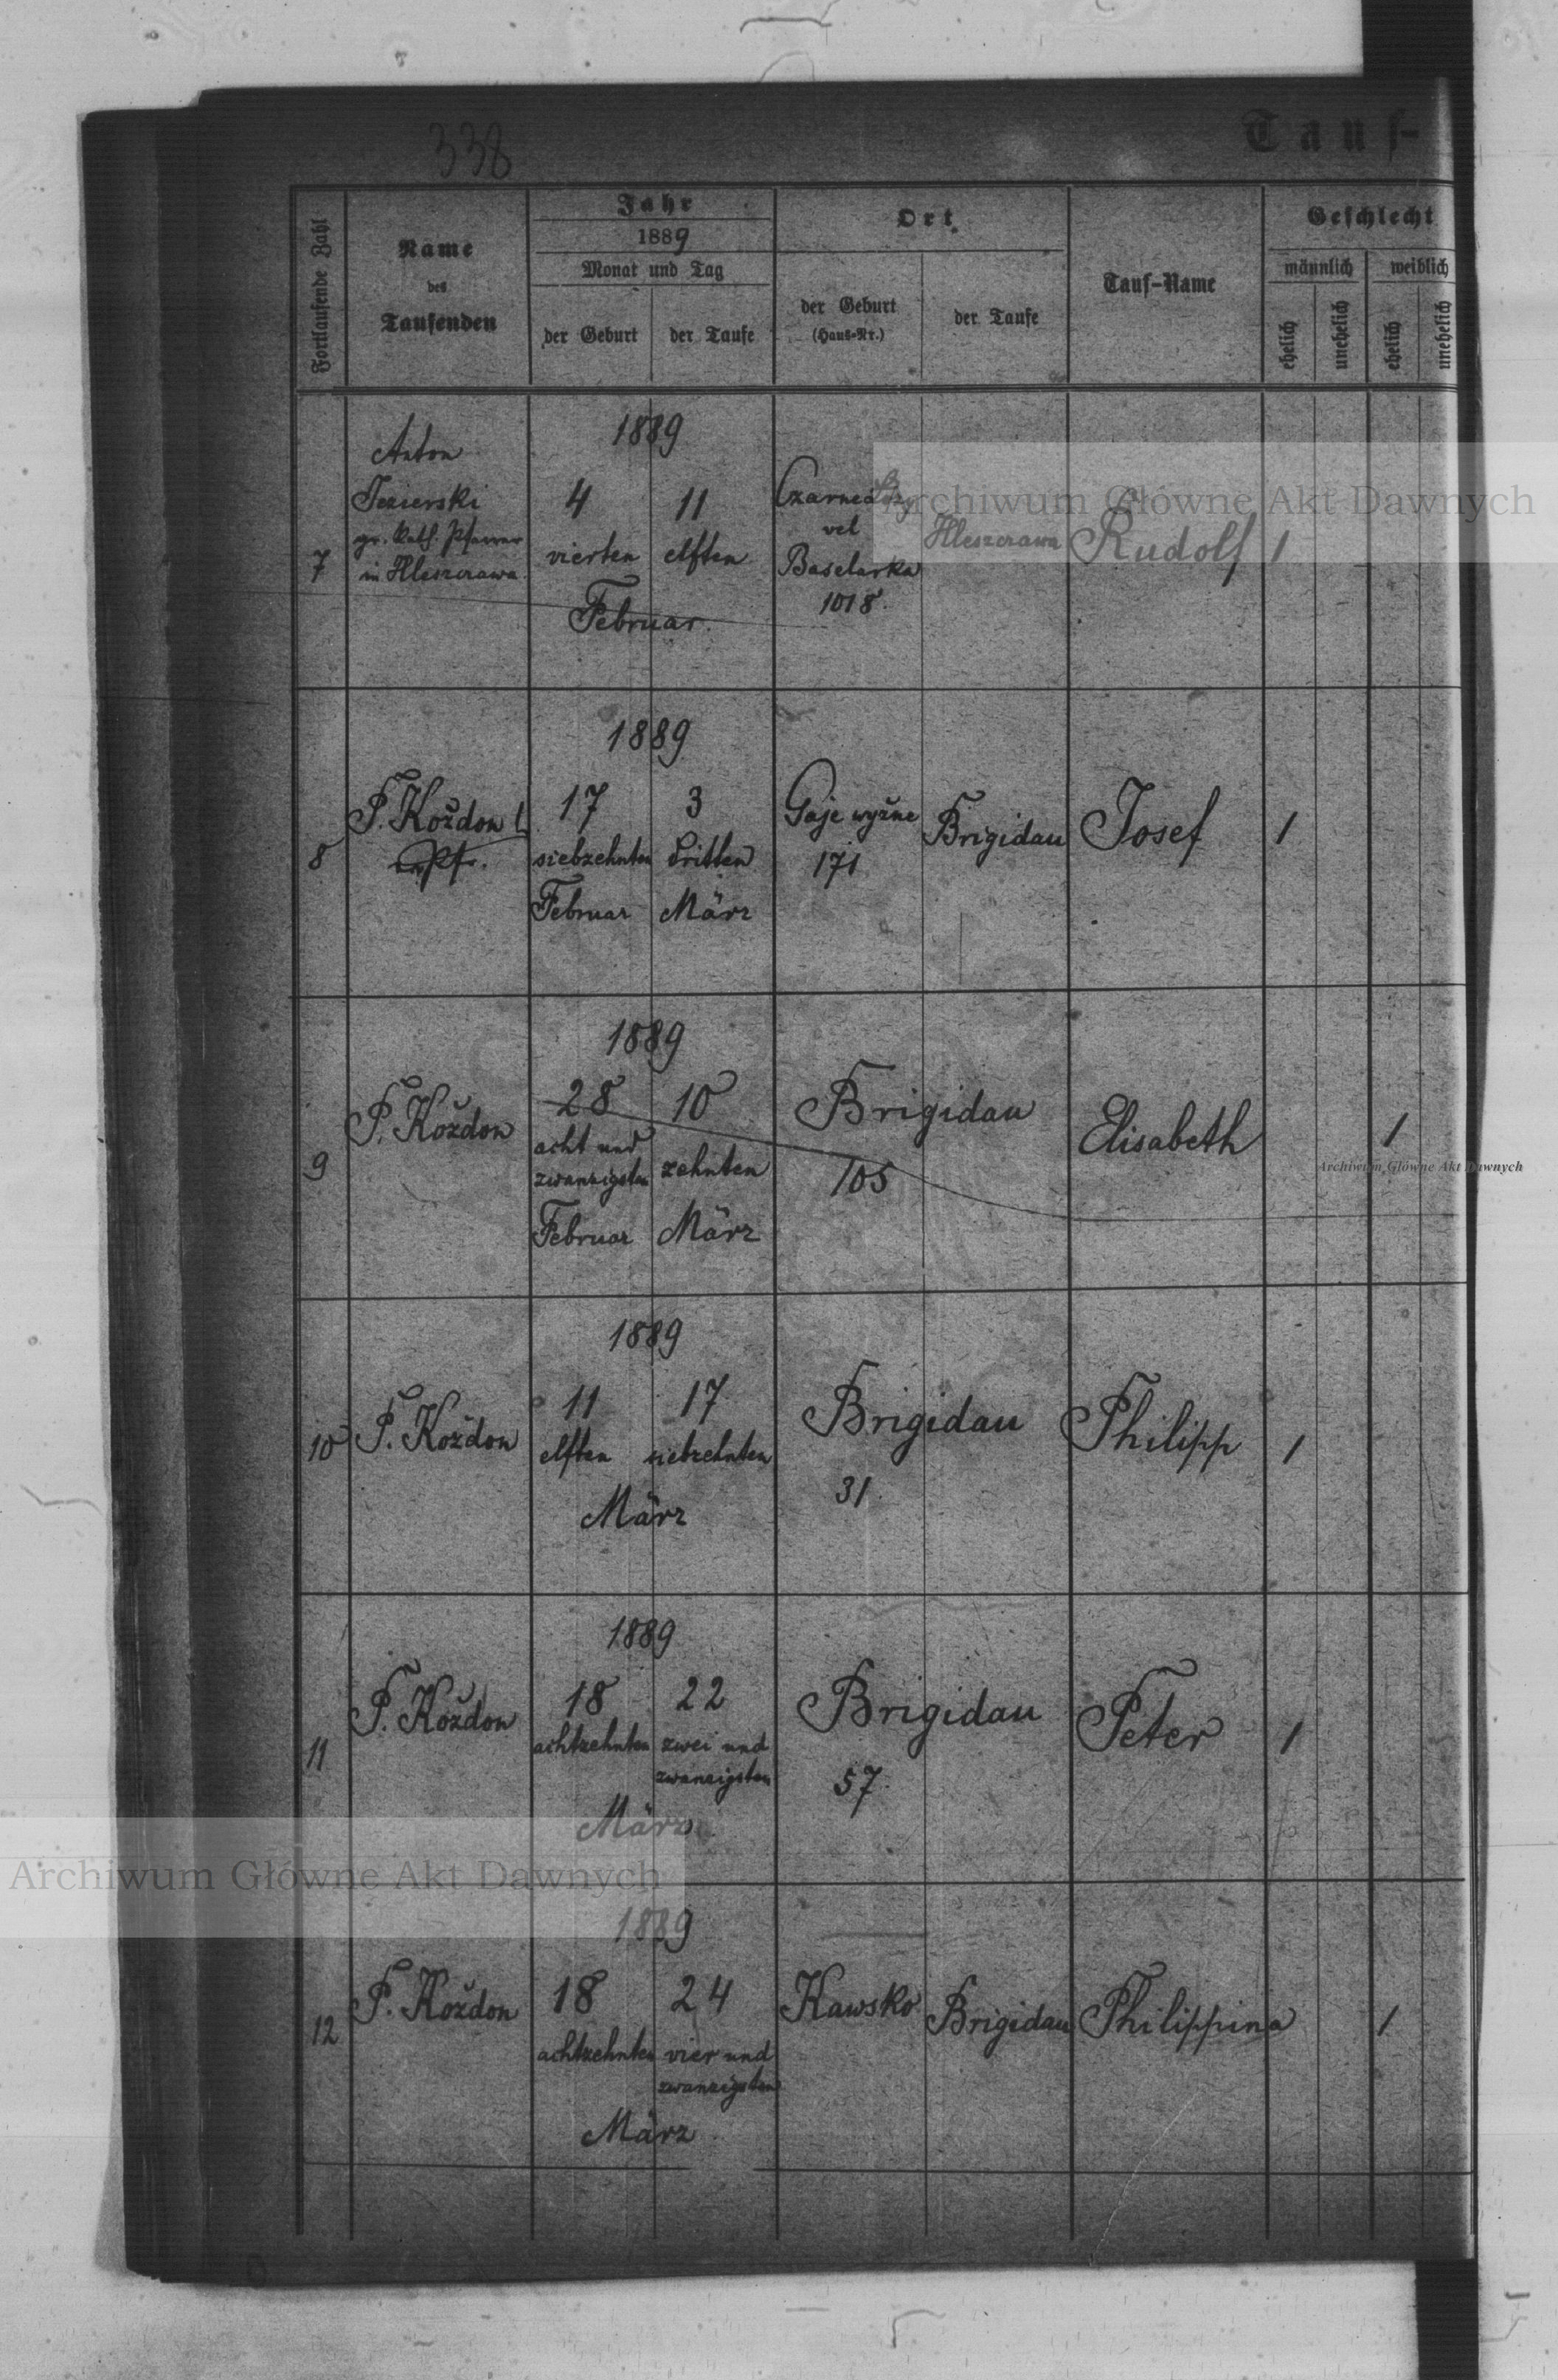 338
Tauf-
Fortlaufende Zahl
Name
des
Taufenden
Jahr
1889
Monat und Tag
der Geburt
der Taufe
Ort
der Geburt
(Haus-Nr.)
der Taufe
Tauf-Name
Geschlecht
männlich
weiblich
ehelich
unehelich
ehelich
unehelich
7
Anton
Jezierski
gr. Kath. Pfarrer
in Hleszczawa
1889
4
vierten
11
elften
Februar.
vel
1018.
Hleszczawa
Rudolf
1
8
P. Koždon
Pf.
1889
17
siebzehnten
Februar
3
dritten
März
Gaje wyžne
171
Brigidau
Josef
1
9
P. Koždon
1889
28
acht und
zwanzigsten
Februar
10
zehnten
März
Brigidau
105
Elisabeth
1
10
P. Koždon
1889
11
elften
17
siebzehnten
März
Brigidau
31
Philipp
1
11
P. Koždon
1889
18
achtzehnten
22
zwei und
zwanzigsten
März
Brigidau
57.
Peter
1
12
P. Koždon
1889
18
achtzehnten
24
vier und
zwanzigsten
März
Kawsko
Brigidau
Philippina
1
Archiwum Główne Akt Dawnych
Archiwum Główne Akt Dawnych
Archiwum Główne Akt Dawnych